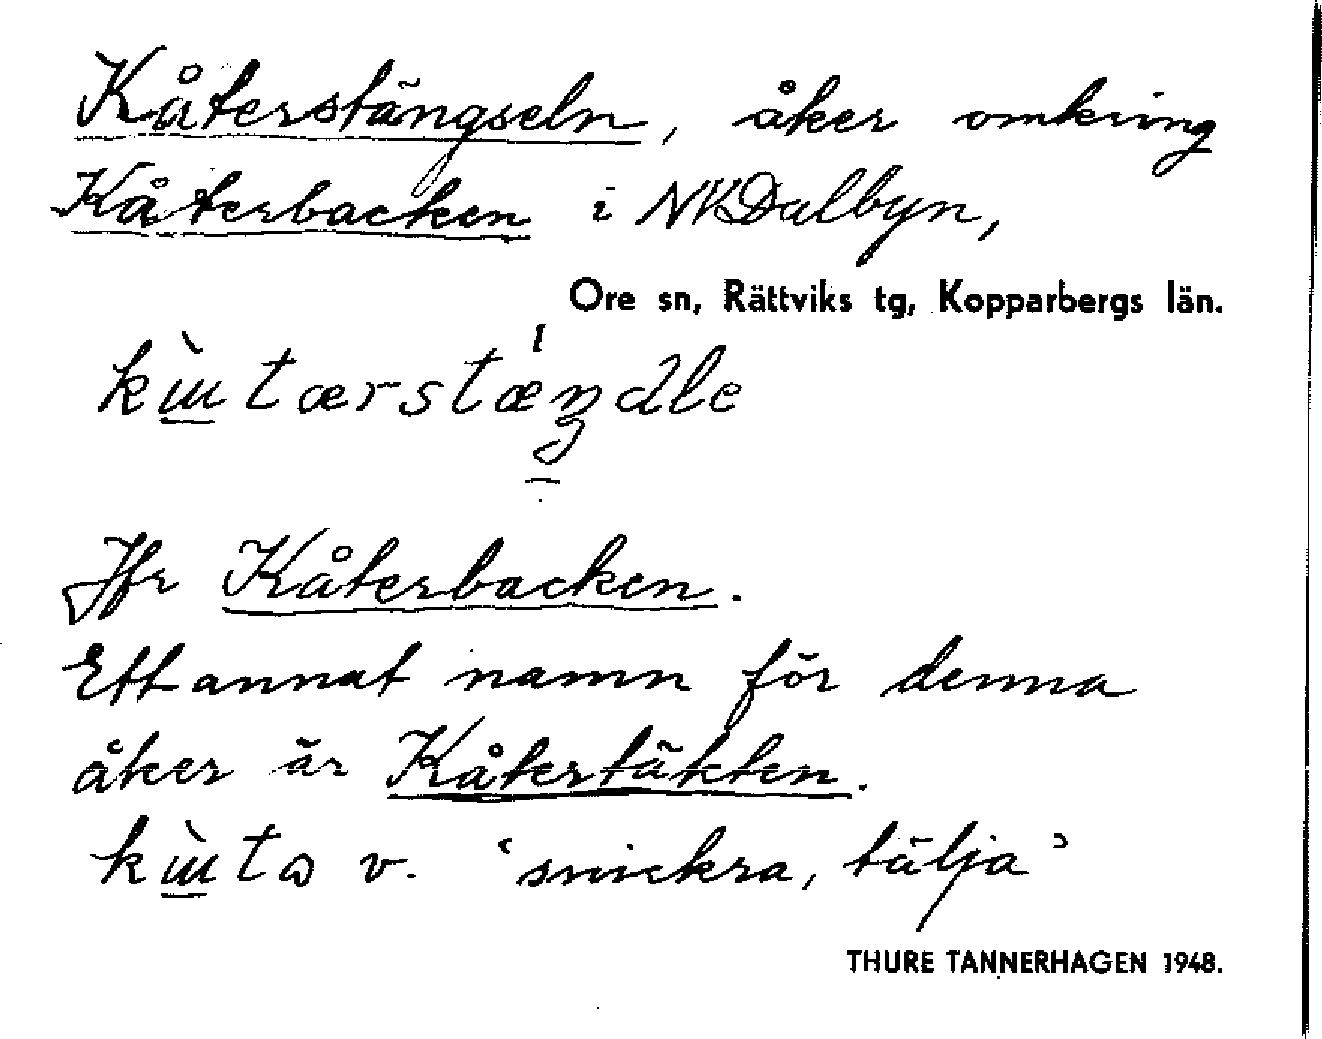 Kåterstängseln, åker omkring
Kåterbacken i NVDalbyn,
Ore sn, Rättviks tg, Kopparbergs län.
Jfr Kåterbacken.
Ett annat namn för denna
åker är Kåtertäkten.
v. 'snickra, tälja'
THURE TANNERHAGEN 1948.